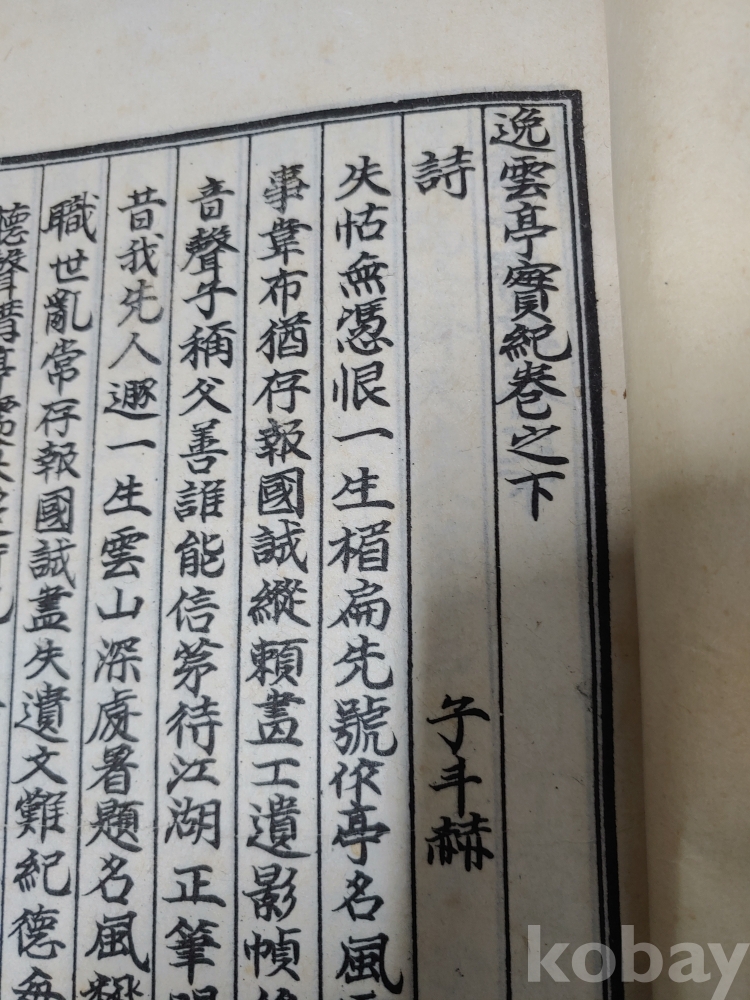 逸雲亭實紀卷之下
詩
子斗爀
失怙無憑恨一生楣扁先號作亭名風
事韋布猶存報國誠縱賴畫工遺影幀
音聲子稱父善誰能信第待江湖正筆
昔我先人遯一生雲山深處署題名風
職世亂常存報國誠盡失遺文難紀德無
德聲
kobay